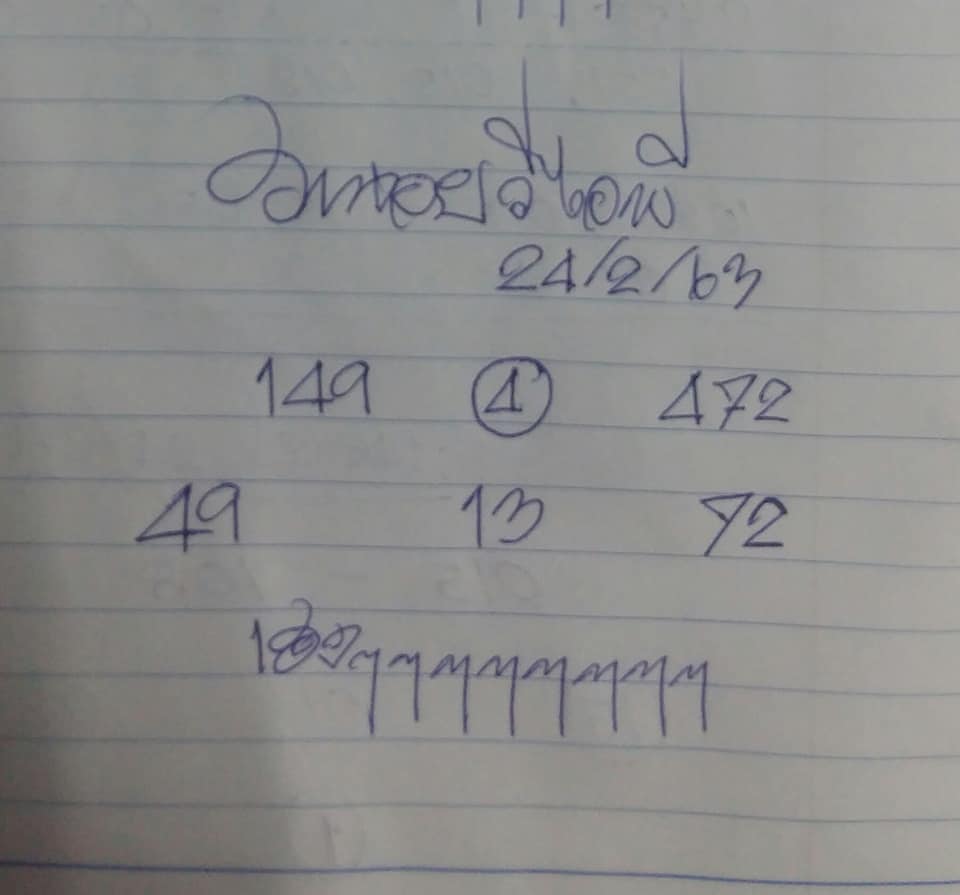 ฮานอยวีไอพี
24/2/63
149 4 472
49 13 72
เฮงๆๆๆๆๆๆๆๆ